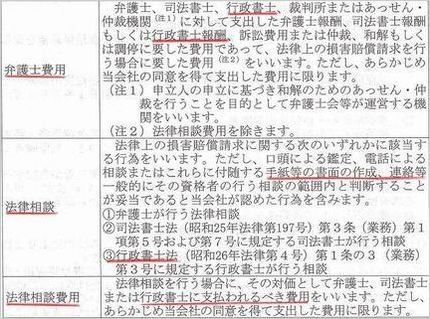 弁護士、司法書士、行政書士、裁判所またはあっせん・
仲裁機関（注1）に対して支出した弁護士報酬、司法書士報酬
もしくは行政書士報酬、訴訟費用または仲裁、和解もしく
は調停に要した費用であって、法律上の損害賠償請求を行
う場合に要した費用（注2）をいいます。ただし、あらかじ
め当会社の同意を得て支出した費用に限ります。
弁護士費用
（注1）申立人の申立に基づき和解のためのあっせん・仲
裁を行うことを目的として弁護士会等が運営する機
関をいいます。
（注2）法律相談費用を除きます。
法律上の損害賠償請求に関する次のいずれかに該当す
る行為をいいます。ただし、口頭による鑑定、電話による
相談またはこれらに付随する手紙等の書面の作成、連絡等
一般的にその資格者の行う相談の範囲内と判断すること
が妥当であると当会社が認めた行為を含みます。
法律相談
①弁護士が行う法律相談
②司法書士法（昭和25年法律第197号）第3条（業務）第1
項第5号および第7号に規定する司法書士が行う相談
③行政書士法（昭和26年法律第4号）第1条の3（業務）
第3号に規定する行政書士が行う相談
法律相談費用
法律相談を行う場合に、その対価として弁護士、司法書士
または行政書士に支払われるべき費用をいいます。ただし、
あらかじめ当会社の同意を得て支出した費用に限ります。